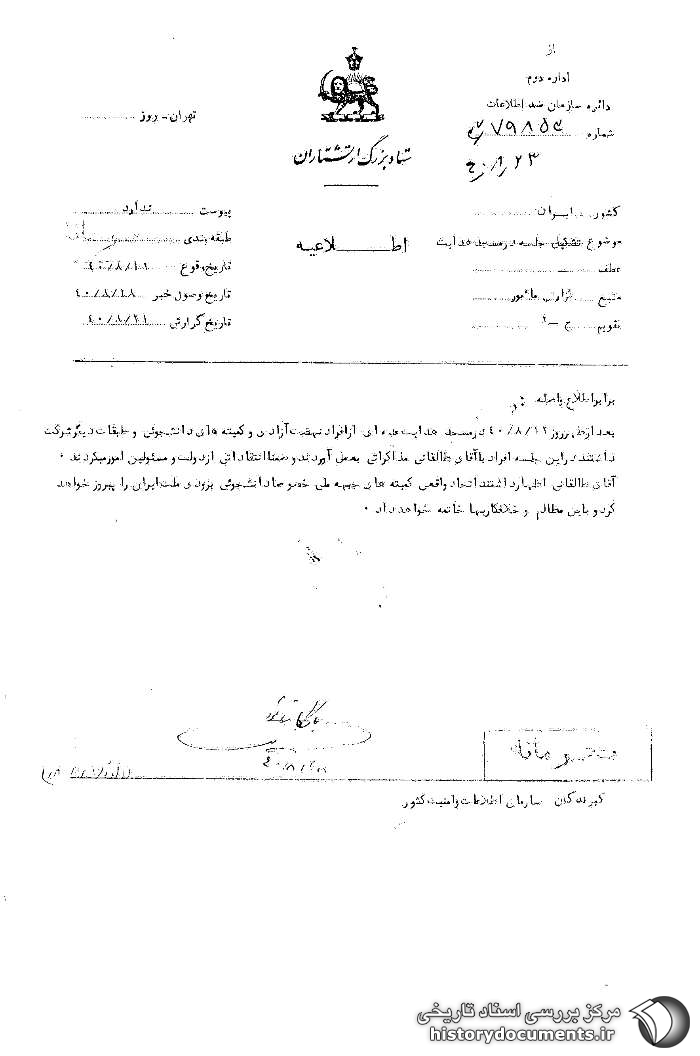 از
اداره دوم
دائره سازمان ضد اطلاعات
شماره
تهران - روز
ستاد بزرگ ارتشتاران
کشور ایران
موضوع تشکیل جلسه در مسجد هدایت
عطف
منبع گزارش مأمور
تقویم ج - ۲
اطلاعیه
پیوست ندارد
طبقه بندی
تاریخ وقوع
تاریخ وصول خبر ۴۰/۸/۱۸
تاریخ گزارش ۴۰/۸/۲۱
برابر اطلاع واصله :
بعد از ظهر روز ۴۰/۸/۱۲ در مسجد هدایت عده ای از افراد نهضت آزادی و کمیته های دانشجوئی و طبقات دیگر شرکت
داشتند در این جلسه افراد با آقای طالقانی مذاکراتی بعمل آوردند و ضمنا انتقاداتی از دولت و مسئولین امور میکردند ۰
آقای طالقانی اظهار داشتند اتحاد واقعی کمیته های جبهه ملی خصوصا دانشجوئی بزودی ملت ایران را پیروز خواهد
کرد و باین مظالم و خلافکاریها خاتمه خواهد داد ۰
بایگانی شود
محرمانه
گیرندگان سازمان اطلاعات و امنیت کشور
مرکز بررسی اسناد تاریخی
historydocuments.ir